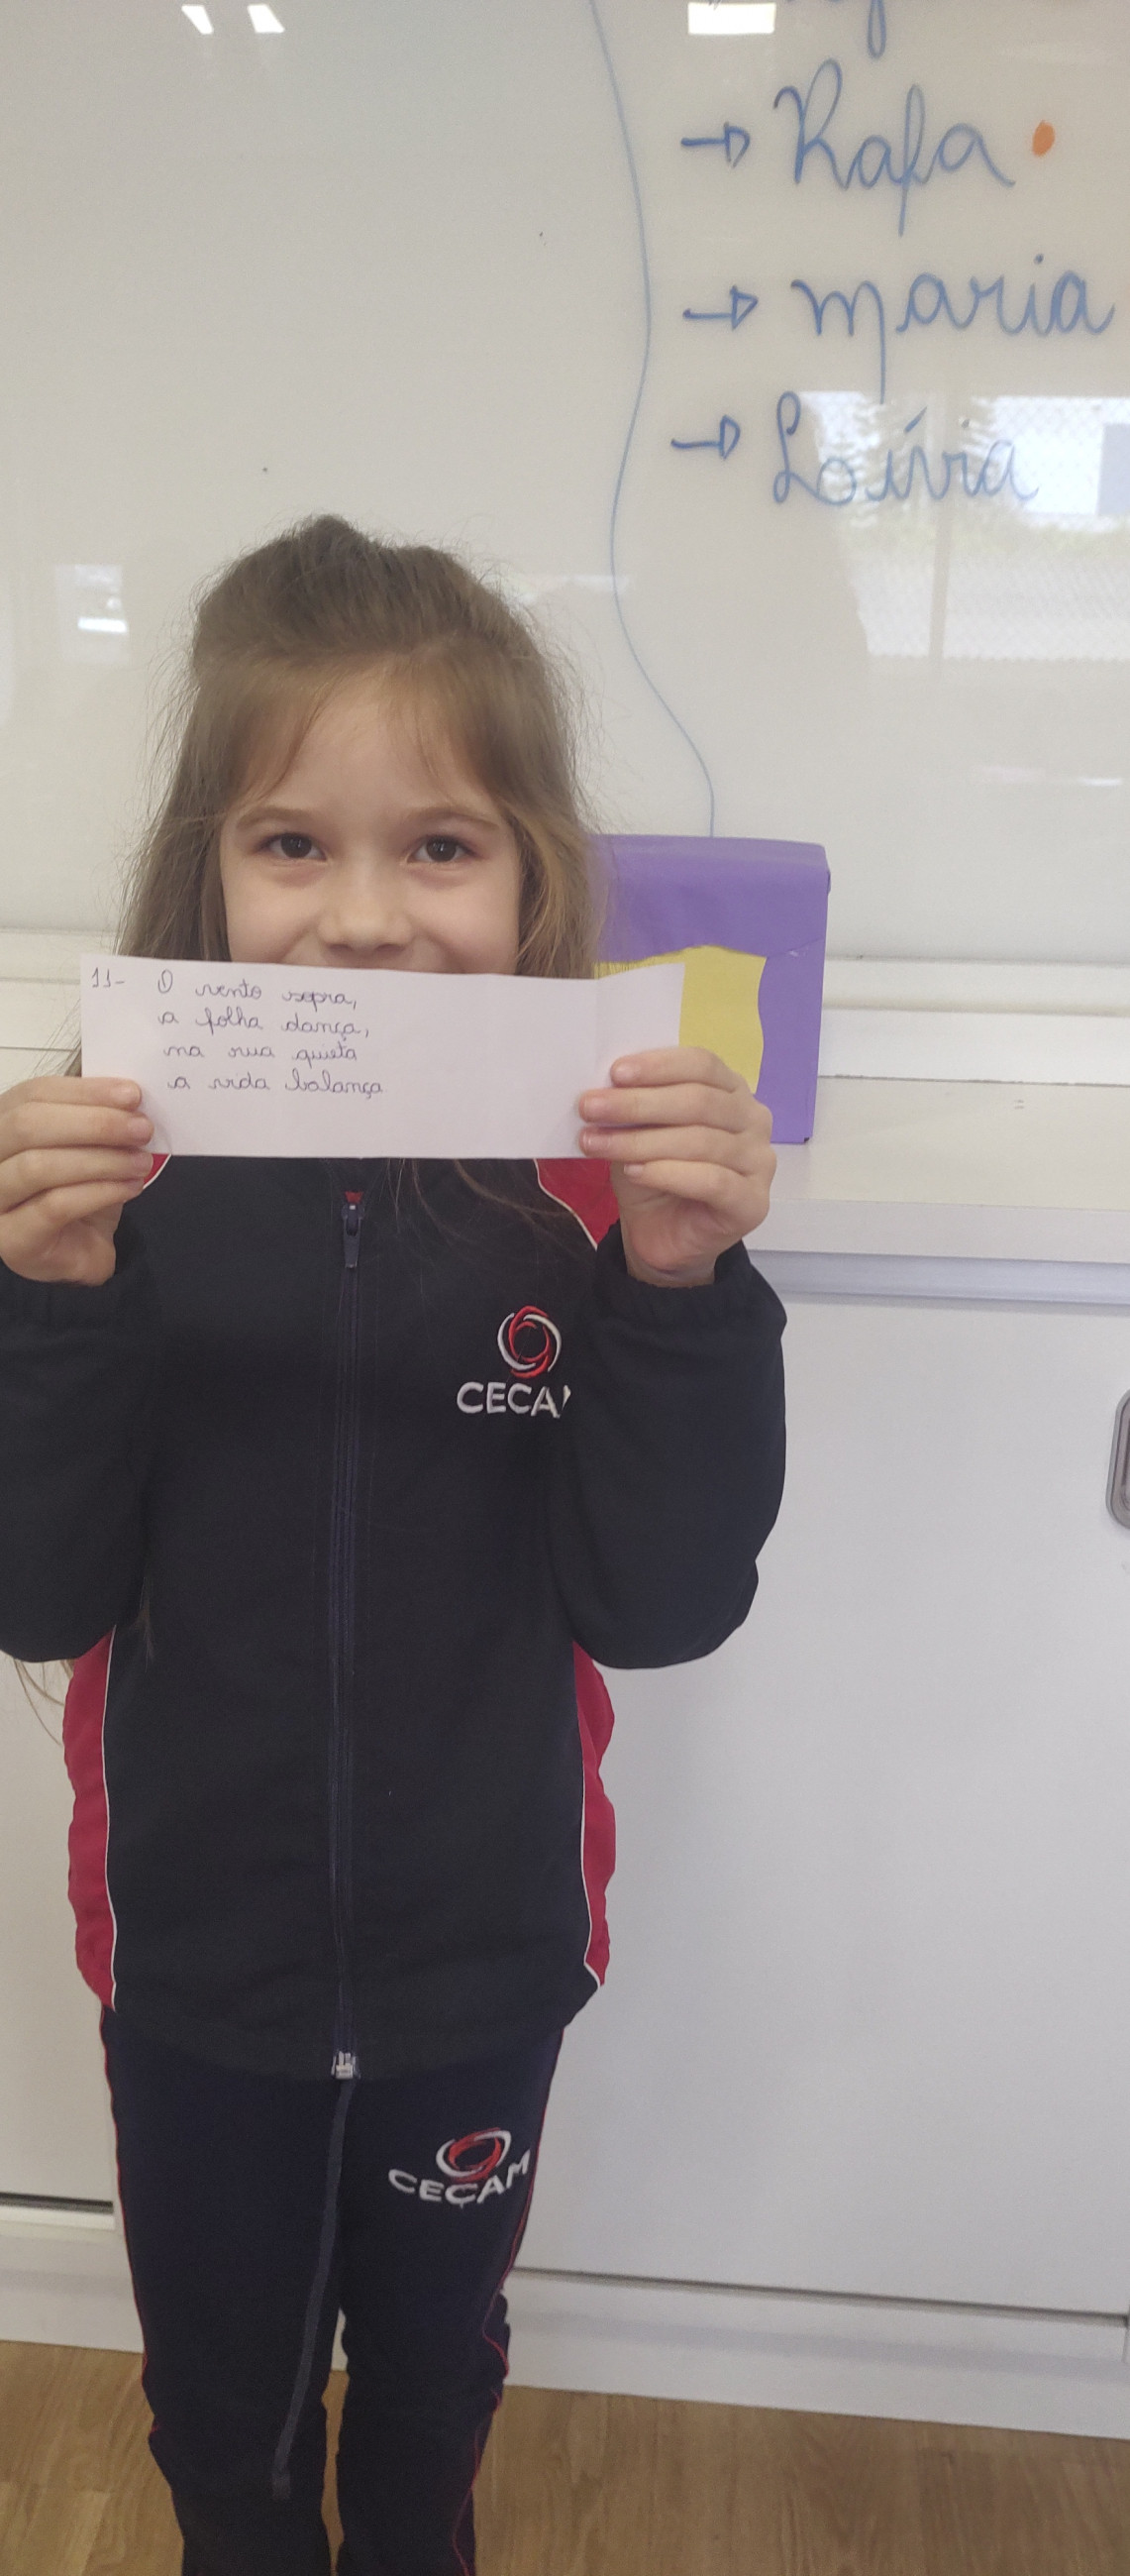 → Rafa
→ maria
→ Loívia
11- O vento sopra,
a folha dança,
na rua quieta
a vida balança
CECA
CECAM